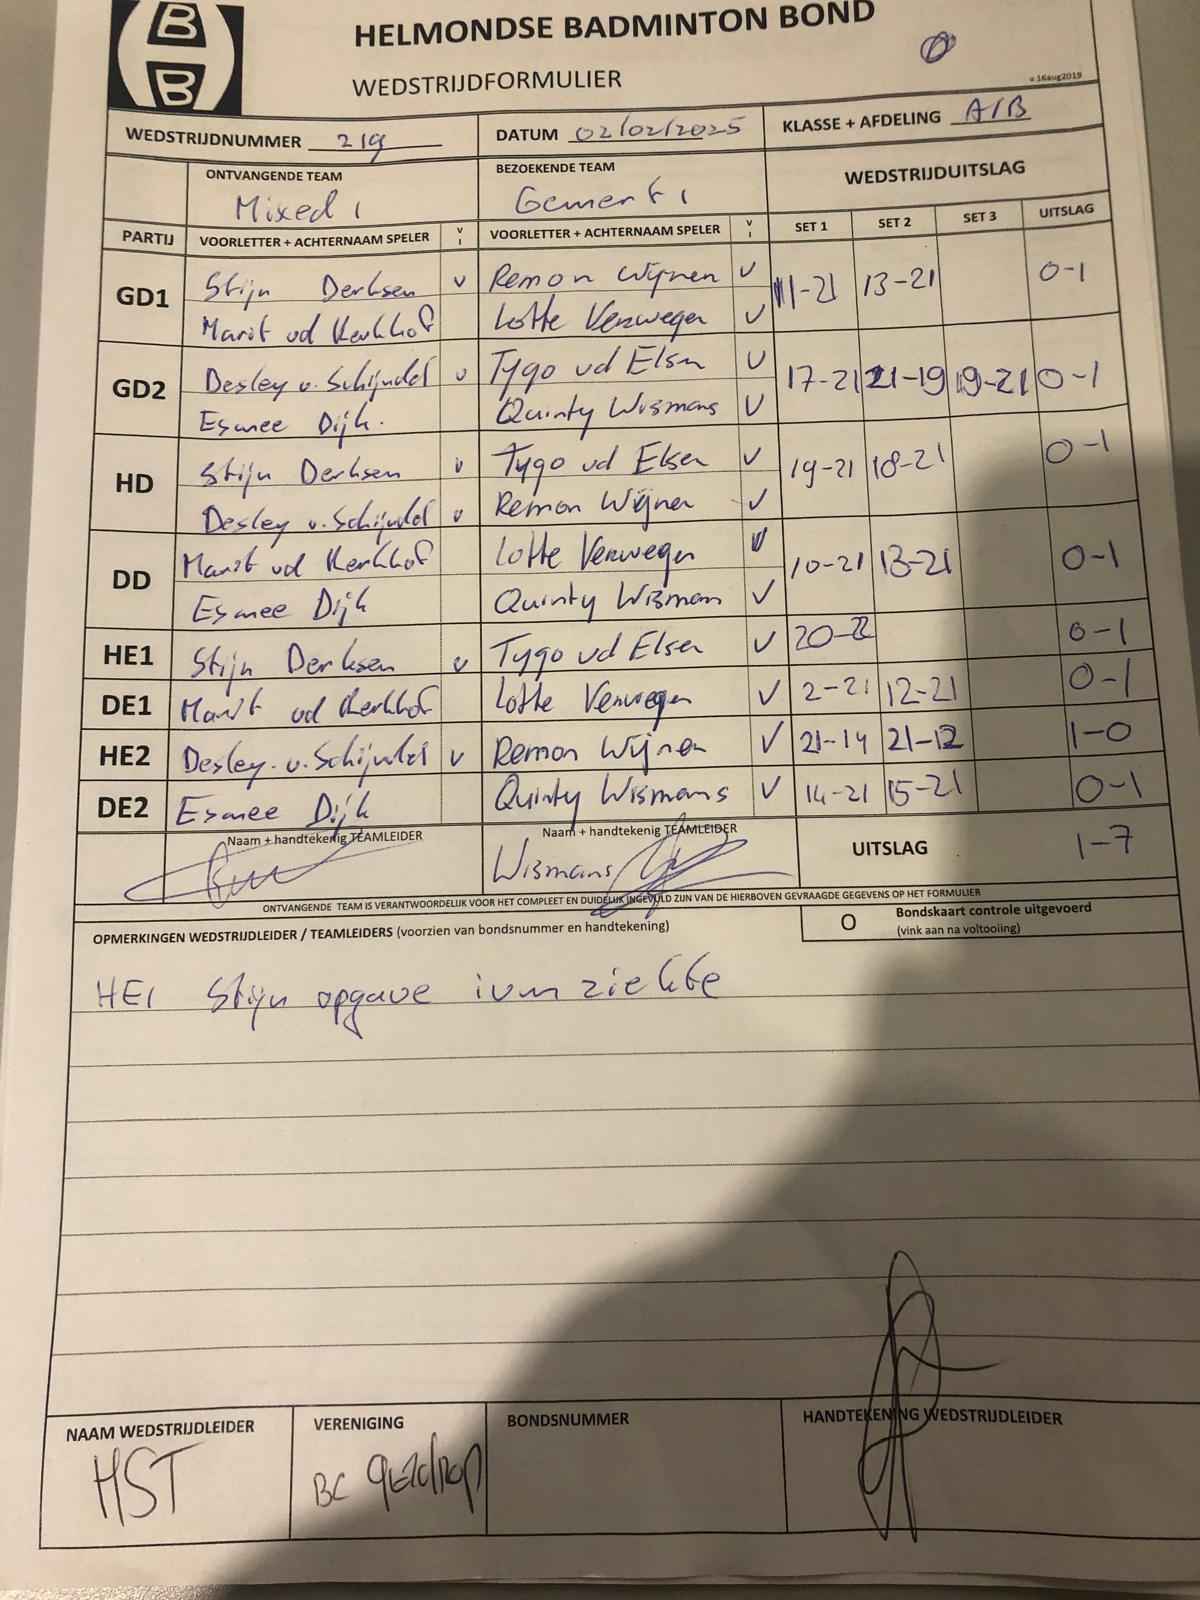 B
B
HELMONDSE BADMINTON BOND
WEDSTRIJDFORMULIER
v 16aug2019
WEDSTRIJDNUMMER 219 DATUM 02/02/2025 KLASSE + AFDELING A/B
ONTVANGENDE TEAM BEZOEKENDE TEAM WEDSTRIJDUITSLAG
Mixed 1 Gemert 1
PARTIJ VOORLETTER + ACHTERNAAM SPELER V I VOORLETTER + ACHTERNAAM SPELER V I SET 1 SET 2 SET 3 UITSLAG
GD1 Stijn Derksen v Remon Wijnen v 11-21 13-21 0-1
Marit vd Kerkhof Lotte Verwegen v
GD2 Desley v. Schijndel v Tygo vd Elsen v 17-21 21-19 19-21 0-1
Esmee Dijk. Quinty Wismans v
HD Stijn Derksen v Tygo vd Elsen v 19-21 18-21 0-1
Desley v. Schijndel v Remon Wijnen v
DD Marit vd Kerkhof Lotte Verwegen v 10-21 13-21 0-1
Esmee Dijk Quinty Wismans v
HE1 Stijn Derksen v Tygo vd Elsen v 20-22 0-1
DE1 Marit vd Kerkhof Lotte Verwegen v 2-21 12-21 0-1
HE2 Desley. v. Schijndel v Remon Wijnen v 21-14 21-12 1-0
DE2 Esmee Dijk Quinty Wismans v 14-21 15-21 0-1
Naam + handtekenig TEAMLEIDER Naam + handtekenig TEAMLEIDER UITSLAG 1-7
Wismans
ONTVANGENDE TEAM IS VERANTWOORDELIJK VOOR HET COMPLEET EN DUIDELIJK INGEVULD ZIJN VAN DE HIERBOVEN GEVRAAGDE GEGEVENS OP HET FORMULIER
OPMERKINGEN WEDSTRIJDLEIDER / TEAMLEIDERS (voorzien van bondsnummer en handtekening) O Bondskaart controle uitgevoerd
(vink aan na voltooiing)
HE1 Stijn opgave ivm ziekte
NAAM WEDSTRIJDLEIDER VERENIGING BONDSNUMMER HANDTEKENING WEDSTRIJDLEIDER
HST BC